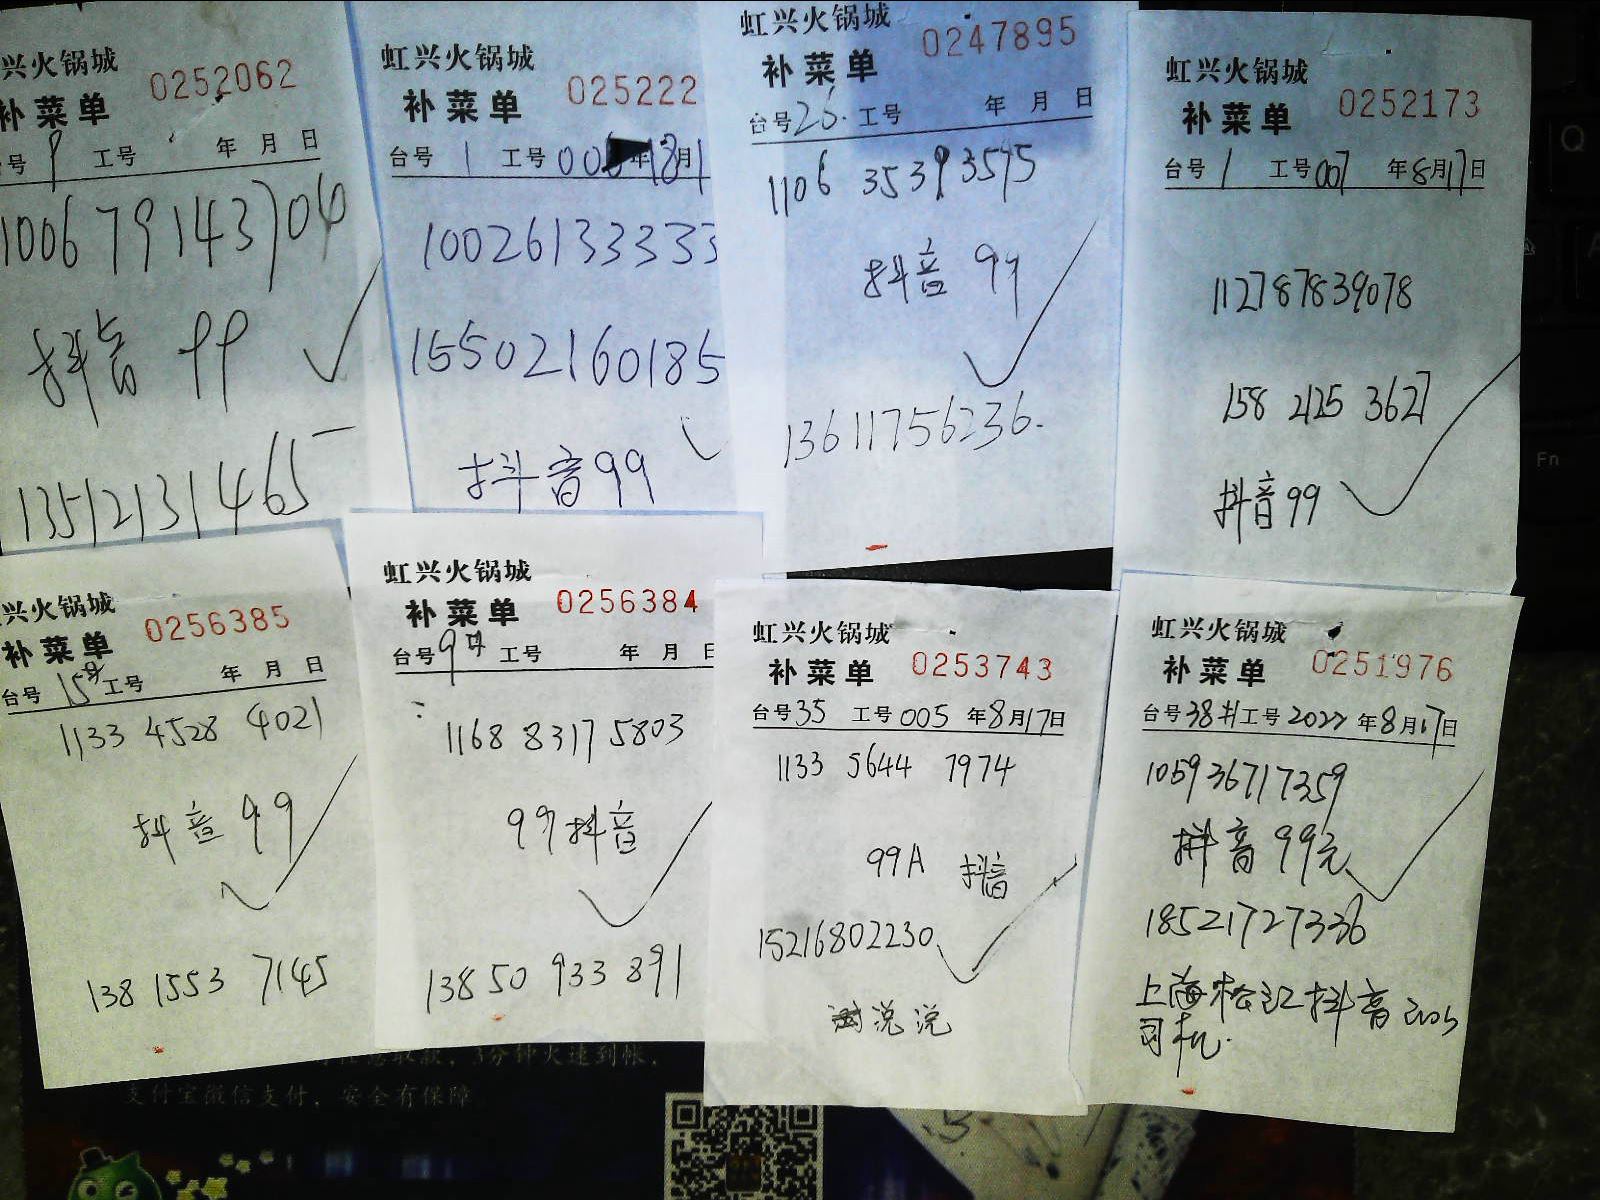 兴火锅城
0252062
补菜单
号 9 工号 年 月 日
1006 7914 3704
抖音 99
13512131465
虹兴火锅城
025222
补菜单
台号 1 工号 00 年 8月1
10026133333
15502160185
抖音99
虹兴火锅城
0247895
补菜单
台号26. 工号 年 月 日
1106 3539 3595
抖音 99
13611756236.
虹兴火锅城
0252173
补菜单
台号 1 工号007 年8月17日
112787839078
158 2125 3627
抖音99
兴火锅城
0256385
补菜单
台号 15号 工号 年 月 日
1133 4528 4021
抖音 99
138 1553 7145
虹兴火锅城
0256384
补菜单
台号9号 工号 年 月 日
1168 8317 5803
99抖音
13850 933 891
虹兴火锅城
0253743
补菜单
台号35 工号005 年8月17日
1133 5644 7974
99A 抖音
15216802230
说说
虹兴火锅城
0251976
补菜单
台号38 工号2022 年8月17日
105936717359
抖音99元
18521727336
上海松江抖音
司机.
取款,3分钟火速到帐,
支付宝微信支付,安全有保障
Q
A
Fn